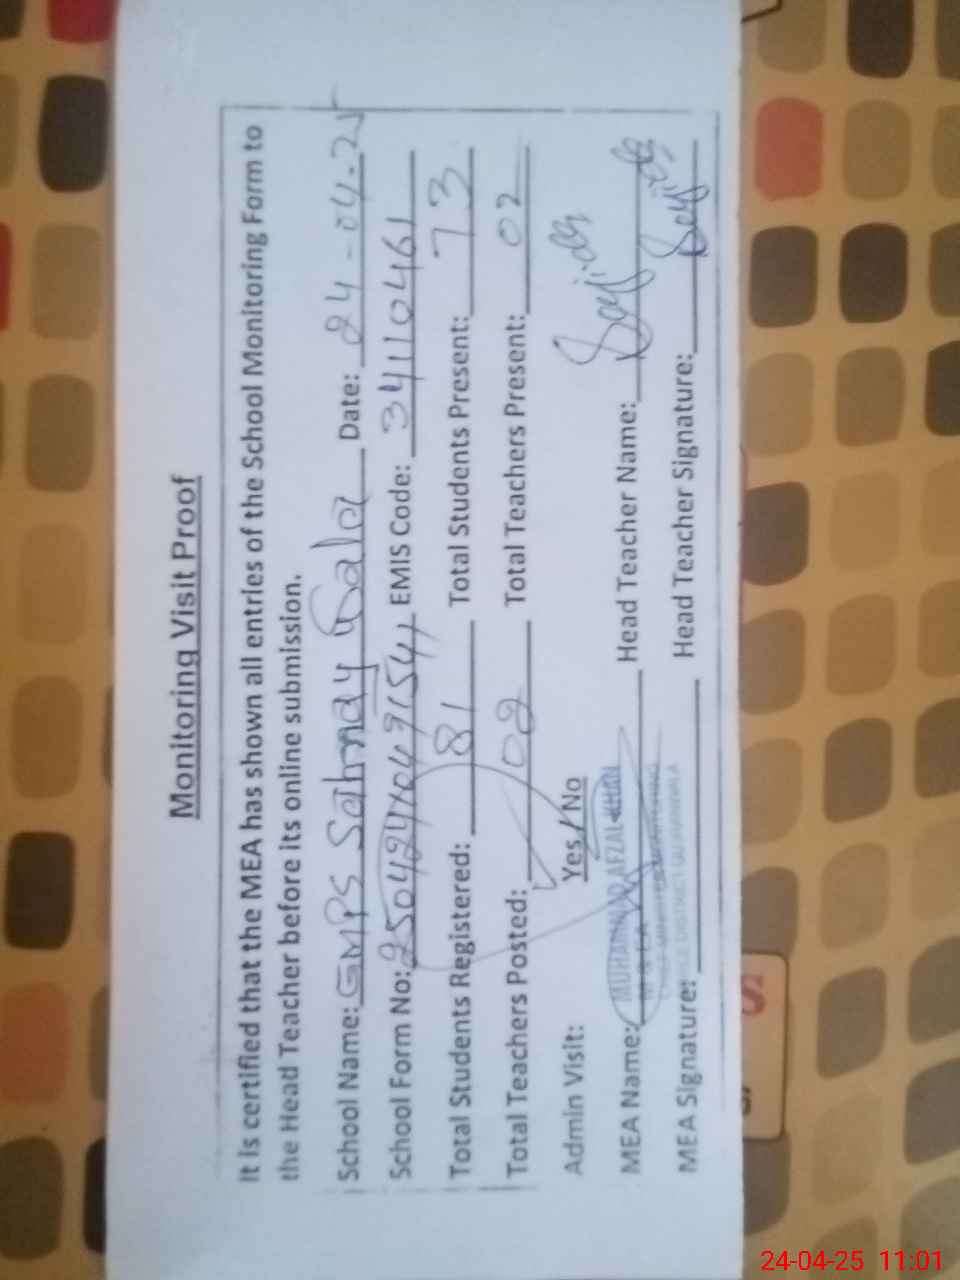 Monitoring Visit Proof
It is certified that the MEA has shown all entries of the School Monitoring Form to
the Head Teacher before its online submission.
School Name: GMPS Sahmay Wala Date: 24-04-25
School Form No: EMIS Code: 34110461
Total Students Registered: 81 Total Students Present: 73
Total Teachers Posted: 02 Total Teachers Present: 02
Admin Visit: Yes / No
MEA Name: MUHAMMAD AFZAL KHAN Head Teacher Name: Sajid
MEA Signature: Head Teacher Signature: Sajid
24-04-25 11:01